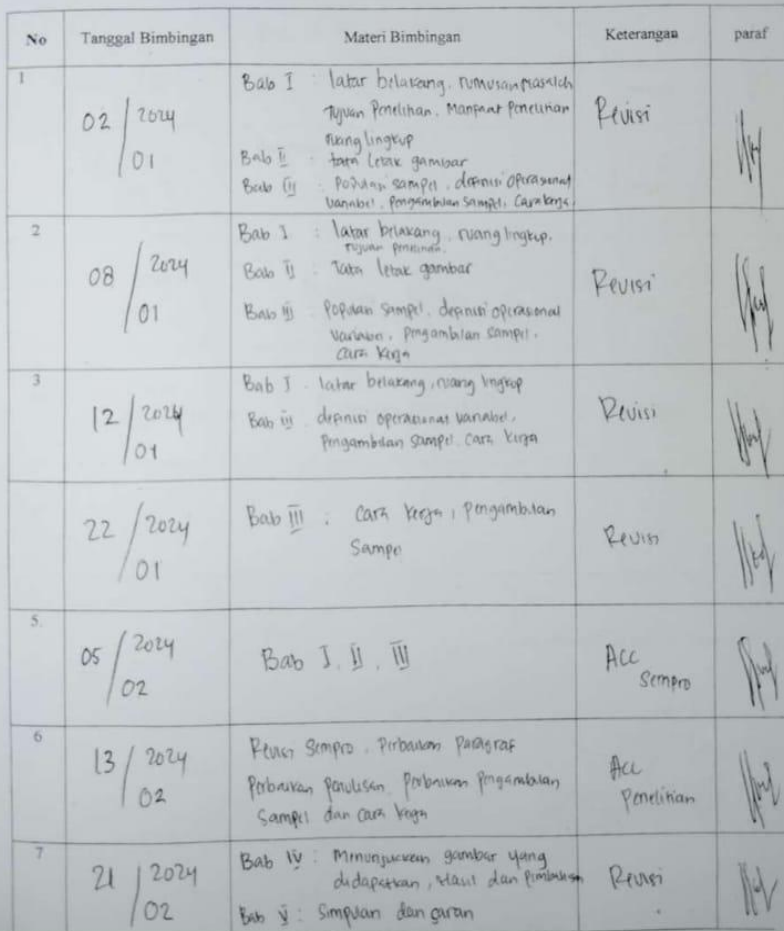 No Tanggal Bimbingan Materi Bimbingan Keterangan paraf
1
02 / 2024
01
Bab I : latar belakang, rumusan masalah
Tujuan Penelitian. Manfaat Penelitian
ruang lingkup
Bab II : tata letak gambar
Bab III : Populasi sampel, definisi operasional
variabel, pengambilan sampel, Cara kerja.
Revisi
2
08 / 2024
01
Bab I : latar belakang, ruang lingkup.
Tujuan penelitian.
Bab II : Tata letak gambar
Bab III : Populasi sampel, definisi operasional
variabel, pengambilan sampel.
Cara Kerja
Revisi
3
12 / 2024
01
Bab I : latar belakang, ruang lingkup
Bab III : definisi operasional variabel.
Pengambilan sampel, Cara kerja
Revisi
22 / 2024
01
Bab III : Cara kerja, pengambilan
Sampel
Revisi
5.
05 / 2024
02
Bab I, II, III
Acc
Sempro
6
13 / 2024
02
Revisi Sempro, Perbaikan Paragraf
Perbaikan penulisan, Perbaikan Pengambilan
Sampel dan Cara kerja
Acc
Penelitian
7
21 / 2024
02
Bab IV : Menunjukkan gambar yang
didapatkan, Hasil dan
Bab V : Simpulan dan saran
Revisi